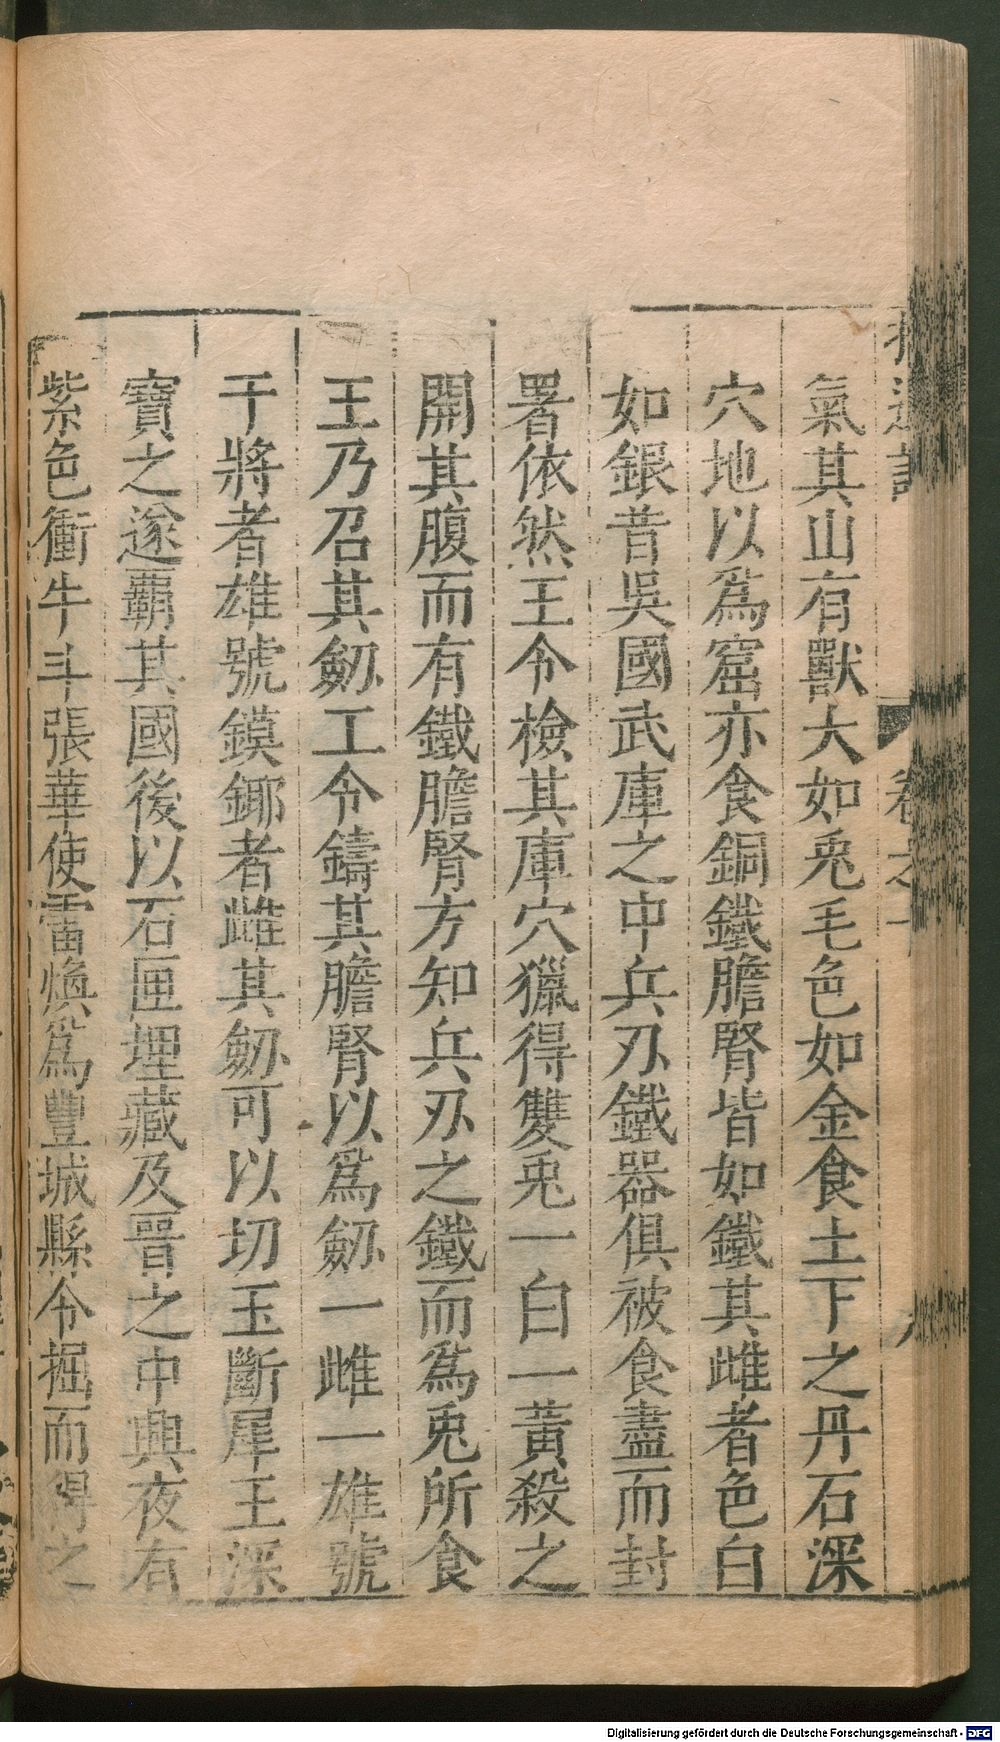 氣其山有獸大如兎毛色如金食土下之丹石深
穴地以爲窟亦食銅鐵膽腎皆如鐵其雌者色白
如銀昔吳國武庫之中兵刃鐵器俱被食盡而封
署依然王令檢其庫穴獵得雙兎一白一黃殺之
開其腹而有鐵膽腎方知兵刃之鐵而爲兎所食
王乃召其劒工令鑄其膽腎以爲劒一雌一雄號
干將者雄號鏌鋣者雌其劒可以切玉斷犀王深
寶之遂霸其國後以石匣埋藏及晉之中興夜有
紫色衝牛斗張華使雷煥爲豐城縣令掘而得之
Digitalisierung gefördert durch die Deutsche Forschungsgemeinschaft - DFG